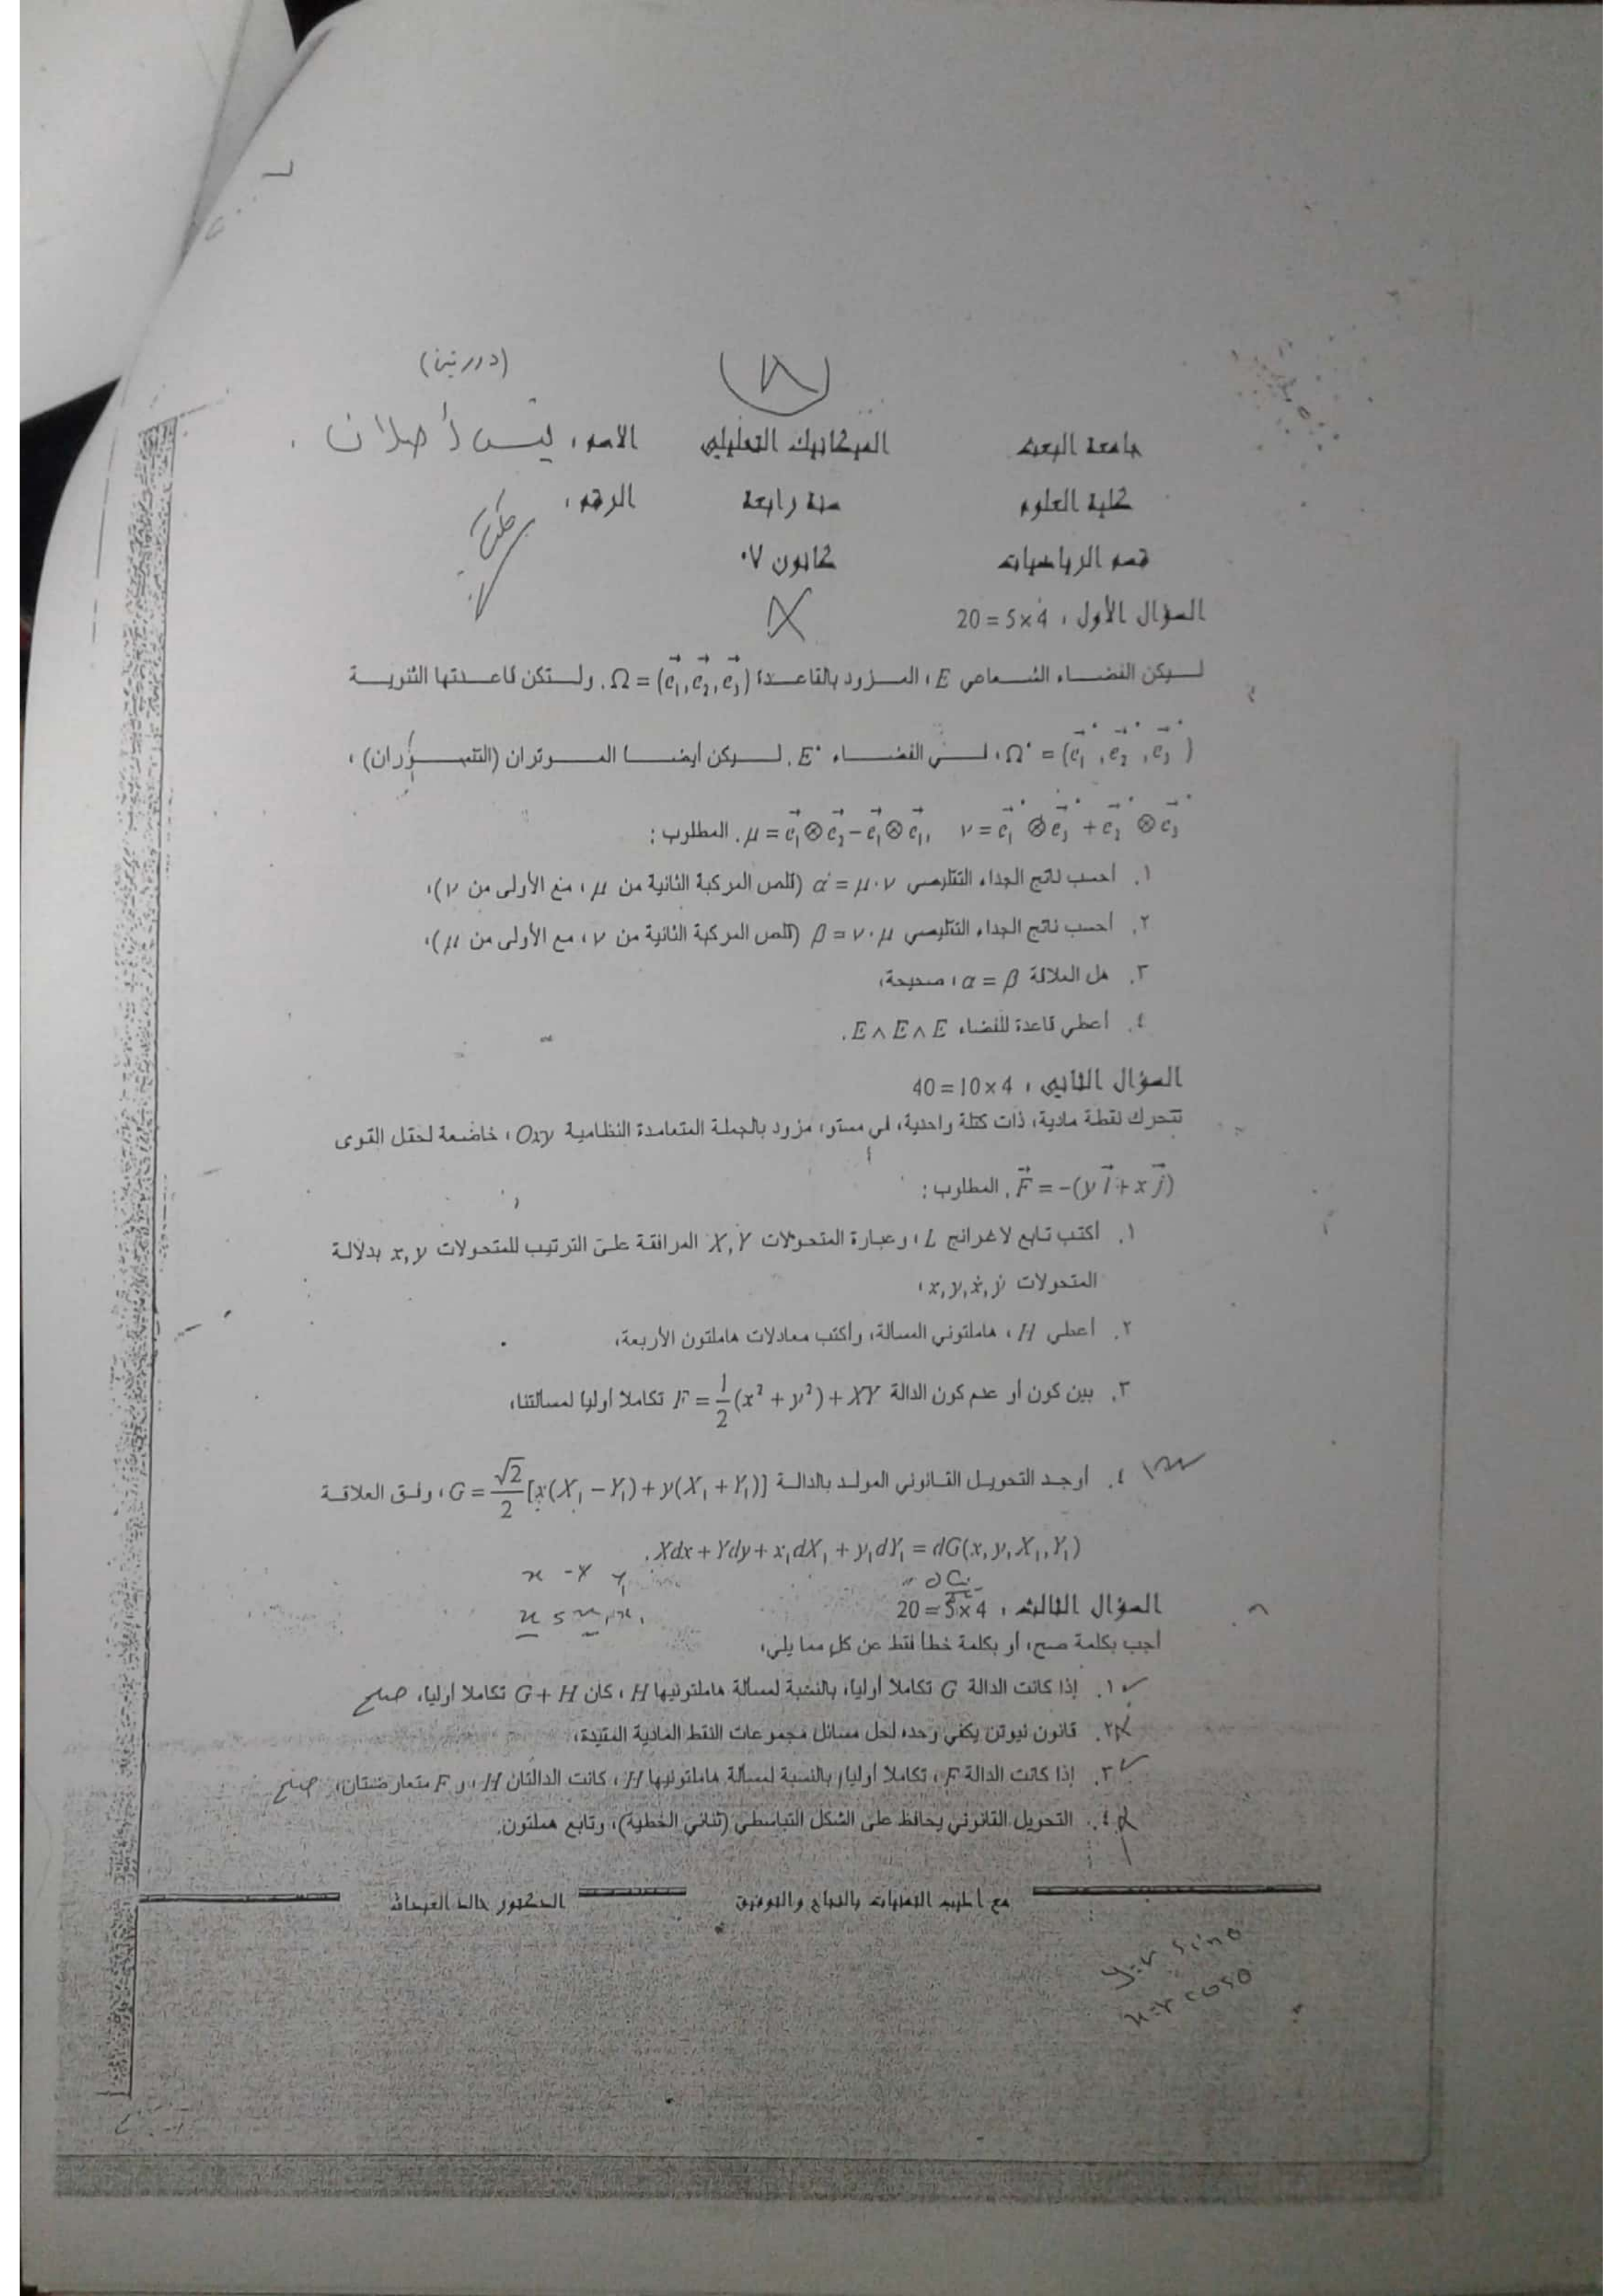 (دورتين)
جامعة البعث الميكانيك التحليلي الاسم:
كلية العلوم سنة رابعة الرقم:
قسم الرياضيات كانون ٠٧
السؤال الأول: 20=5×4
ليكن الفضاء الشعاعي E، المزود بالقاعدة Ω = (e₁⃗, e₂⃗, e₃⃗). ولتكن قاعدتها الثنوية
Ω* = (e₁⃗*, e₂⃗*, e₃⃗*)، في الفضاء E*. ليكن أيضا الموتران (التنسوران)،
μ = e₁⃗⊗e₂⃗ − e₁⃗⊗e₁⃗, ν = e₁⃗*⊗e₃⃗* + e₂⃗*⊗e₃⃗*. المطلوب:
١. أحسب ناتج الجداء التقليصي α = μ·ν (قلص المركبة الثانية من μ، مع الأولى من ν)،
٢. أحسب ناتج الجداء التقليصي β = ν·μ (قلص المركبة الثانية من ν، مع الأولى من μ)،
٣. هل العلاقة α = β، صحيحة،
٤. أعطي قاعدة للفضاء E∧E∧E.
السؤال الثاني: 40=10×4
تتحرك نقطة مادية، ذات كتلة واحدية، في مستو، مزود بالجملة المتعامدة النظامية Oxy، خاضعة لحقل القوى
F⃗ = −(y i⃗ + x j⃗). المطلوب:
١. أكتب تابع لاغرانج L، وعبارة المتحولات X,Y المرافقة على الترتيب للمتحولات x,y بدلالة
المتحولات x,y,ẋ,ẏ،
٢. أعطي H، هاملتوني المسالة، وأكتب معادلات هاملتون الأربعة،
٣. بين كون أو عدم كون الدالة F = 1/2 (x² + y²) + XY تكاملا أوليا لمسالتنا،
٤. أوجد التحويل القانوني المولد بالدالة G = √2/2 [x(X₁ − Y₁) + y(X₁ + Y₁)]، وفق العلاقة
Xdx + Ydy + x₁dX₁ + y₁dY₁ = dG(x, y, X₁, Y₁).
السؤال الثالث: 20=5×4
أجب بكلمة صح، أو بكلمة خطأ فقط عن كل مما يلي،
١. إذا كانت الدالة G تكاملا أوليا، بالنسبة لمسألة هاملتونيها H، كان G + H تكاملا أوليا، صح
٢. قانون نيوتن يكفي وحده لحل مسائل مجموعات النقط المادية المقيدة،
٣. إذا كانت الدالة F، تكاملا أوليا، بالنسبة لمسألة هاملتونيها H، كانت الدالتان H، و F متعارضتان، صح
٤. التحويل القانوني يحافظ على الشكل التباسطي (ثنائي الخطية)، وتابع هملتون.
مع أطيب التمنيات بالنجاح والتوفيق الدكتور خالد
y=r sinθ
x=r cosθ